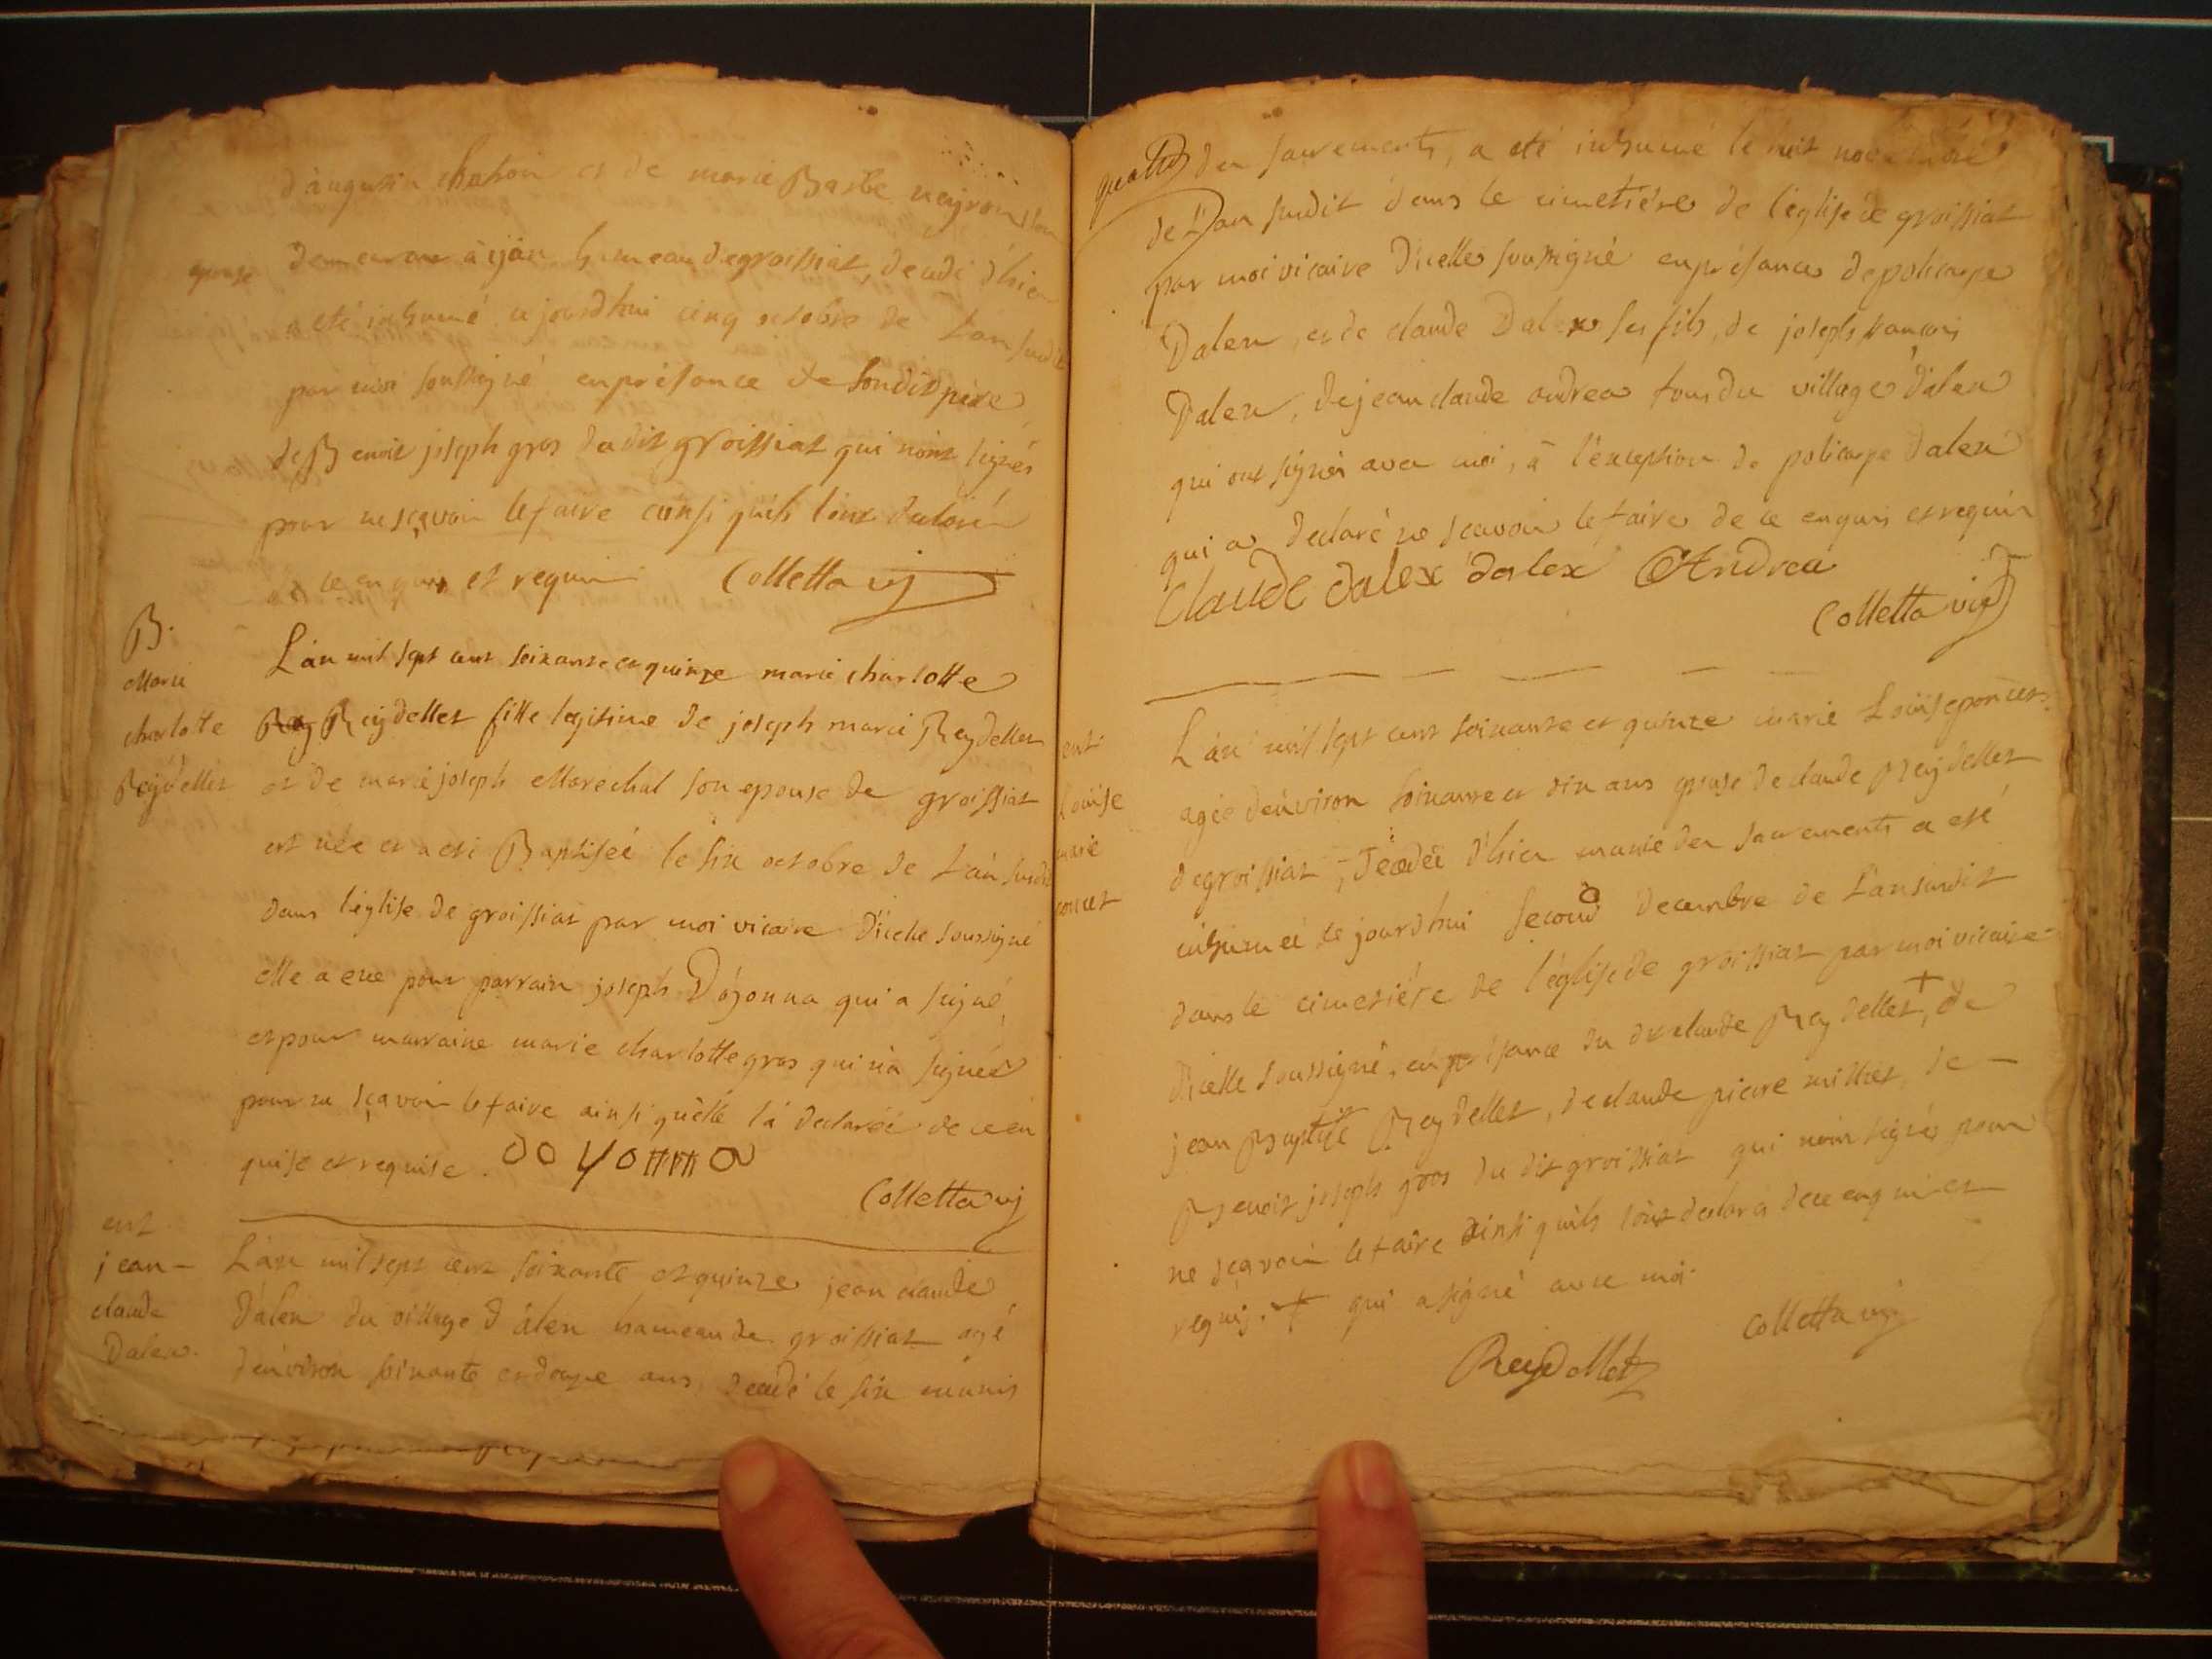 d'augustin chaton et de marie Barbe neyron son
epouse demeurant a ijan hameau de groissiat, decedé d'hier
a eté inhumé ajourdhui cinq octobre de L'an susdit
par moi soussigné en présence de son dit père
de Benoit joseph gros dudit groissiat qui n'ont signés
pour ne sçavoir le faire ainsi qu'ils l'ont declaré
de ce enquis et requis Colletta vi
B.
Marie
charlotte
Reydellet
L'an mil sept cent soixante et quinze marie charlotte
Rey Reydellet fille legitime de joseph marie Reydellet
et de marie joseph Marechal son epouse de groissiat
est née et a eté Baptiseé le six octobre de L'an susdit
dans l'église de groissiat par moi vicaire d'icelle soussigné
elle a eue pour parrain joseph Dojonna qui a signé,
et pour marraine marie charlotte gros qui n'a signéé
pour ne sçavoir le faire ainsi qu'elle l'a declaréé de ce en
quise et requise.
Colletta vi
ent
jean
claude
Dalex.
L'an mil sept cent soixante et quinze jean claude
Dalex du village d'alex hameau de groissiat agé
d'environ soixante et douze ans, decedé le six munis
quatre des sacrements, a eté inhumé le huit novembre
de L'an susdit dans le cimetiére de l'église de groissiat
par moi vicaire d'icelle soussigné en présance de policarpe
Dalex, et de claude Dalex ses fils, de joseph francois
Dalex, de jean claude andrea tous du village d'alex
qui ont signés avec moi, à l'exception de policarpe Dalex
qui a declaré ne scavoir le faire de ce enquis et requis
Claude dalex dalex Andrea
Colletta vi
ent
Louise
marie
poncet
L'an mil sept cent soixante et quinze marie Louise poncet
agée d'environ soixante et dix ans epouse de claude Reydellet
de groissiat, décedéé d'hier munie des sacrements a eté
inhumeé ce jourdhui second decembre de L'an susdit
dans le cimetiére de l'église de groissiat par moi vicaire
d'icelle soussigné, en présance du dit claude Reydellet +, de
jean Baptiste Reydellet, de claude pierre millet, de
Benoit joseph gros du dit groissiat qui n'ont signés pour
ne sçavoir le faire ainsi qu'ils l'ont declarés de ce enquis et
requis. + qui a signé avec moi.
Colletta vi
Reydellet